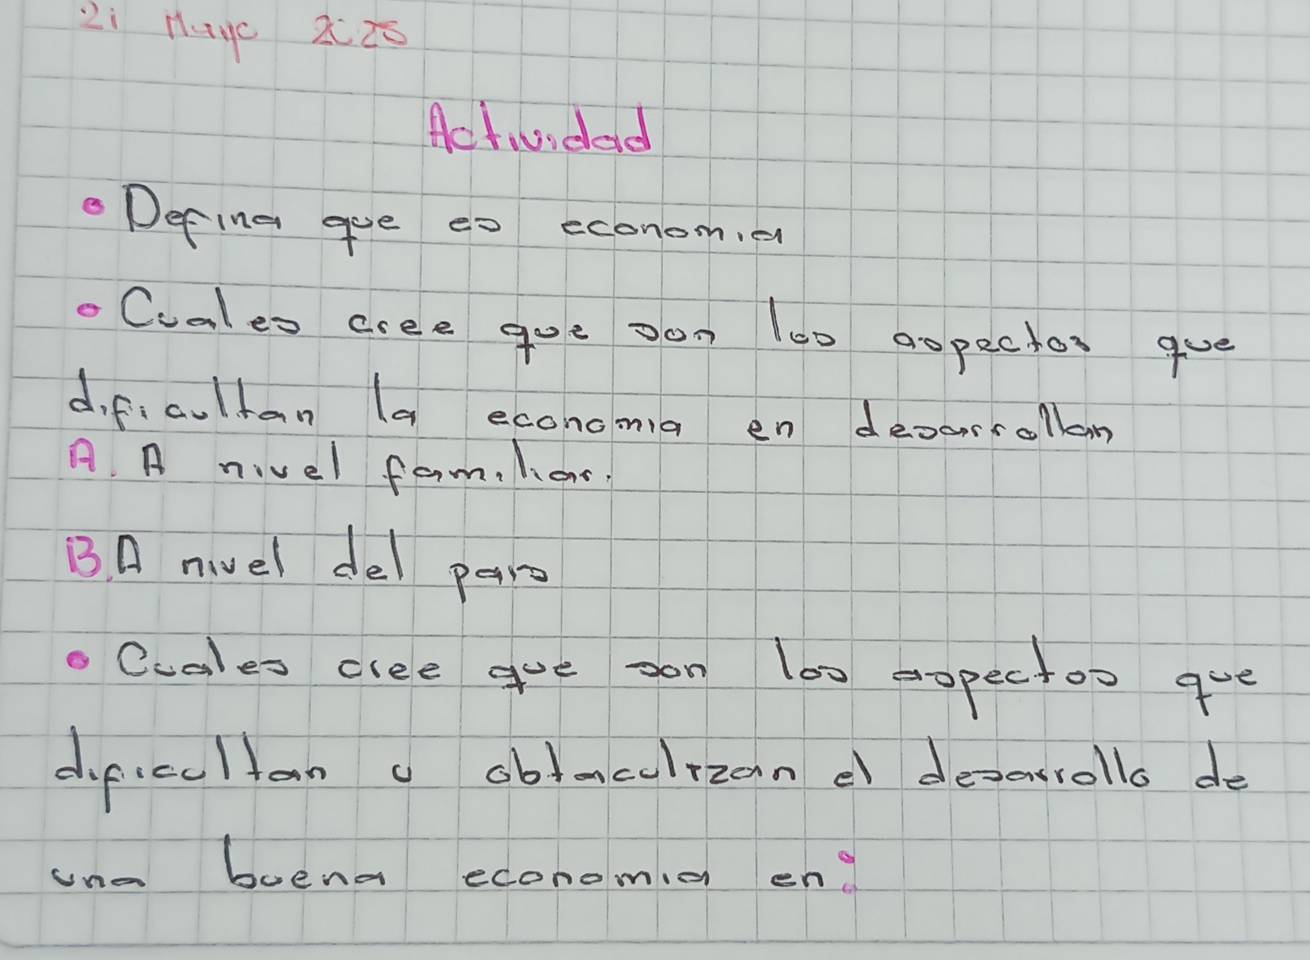 21 Mayo 2025
Actividad
• Defina que es economia
• Cuales cree que son los aspectos que
dificultan la economia en desarrollan
A. A nivel familiar.
B. A nivel del pais
• Cuales cree que son los aspectos que
dificultan u obtaculizan el desarrollo de
una buena economia en: